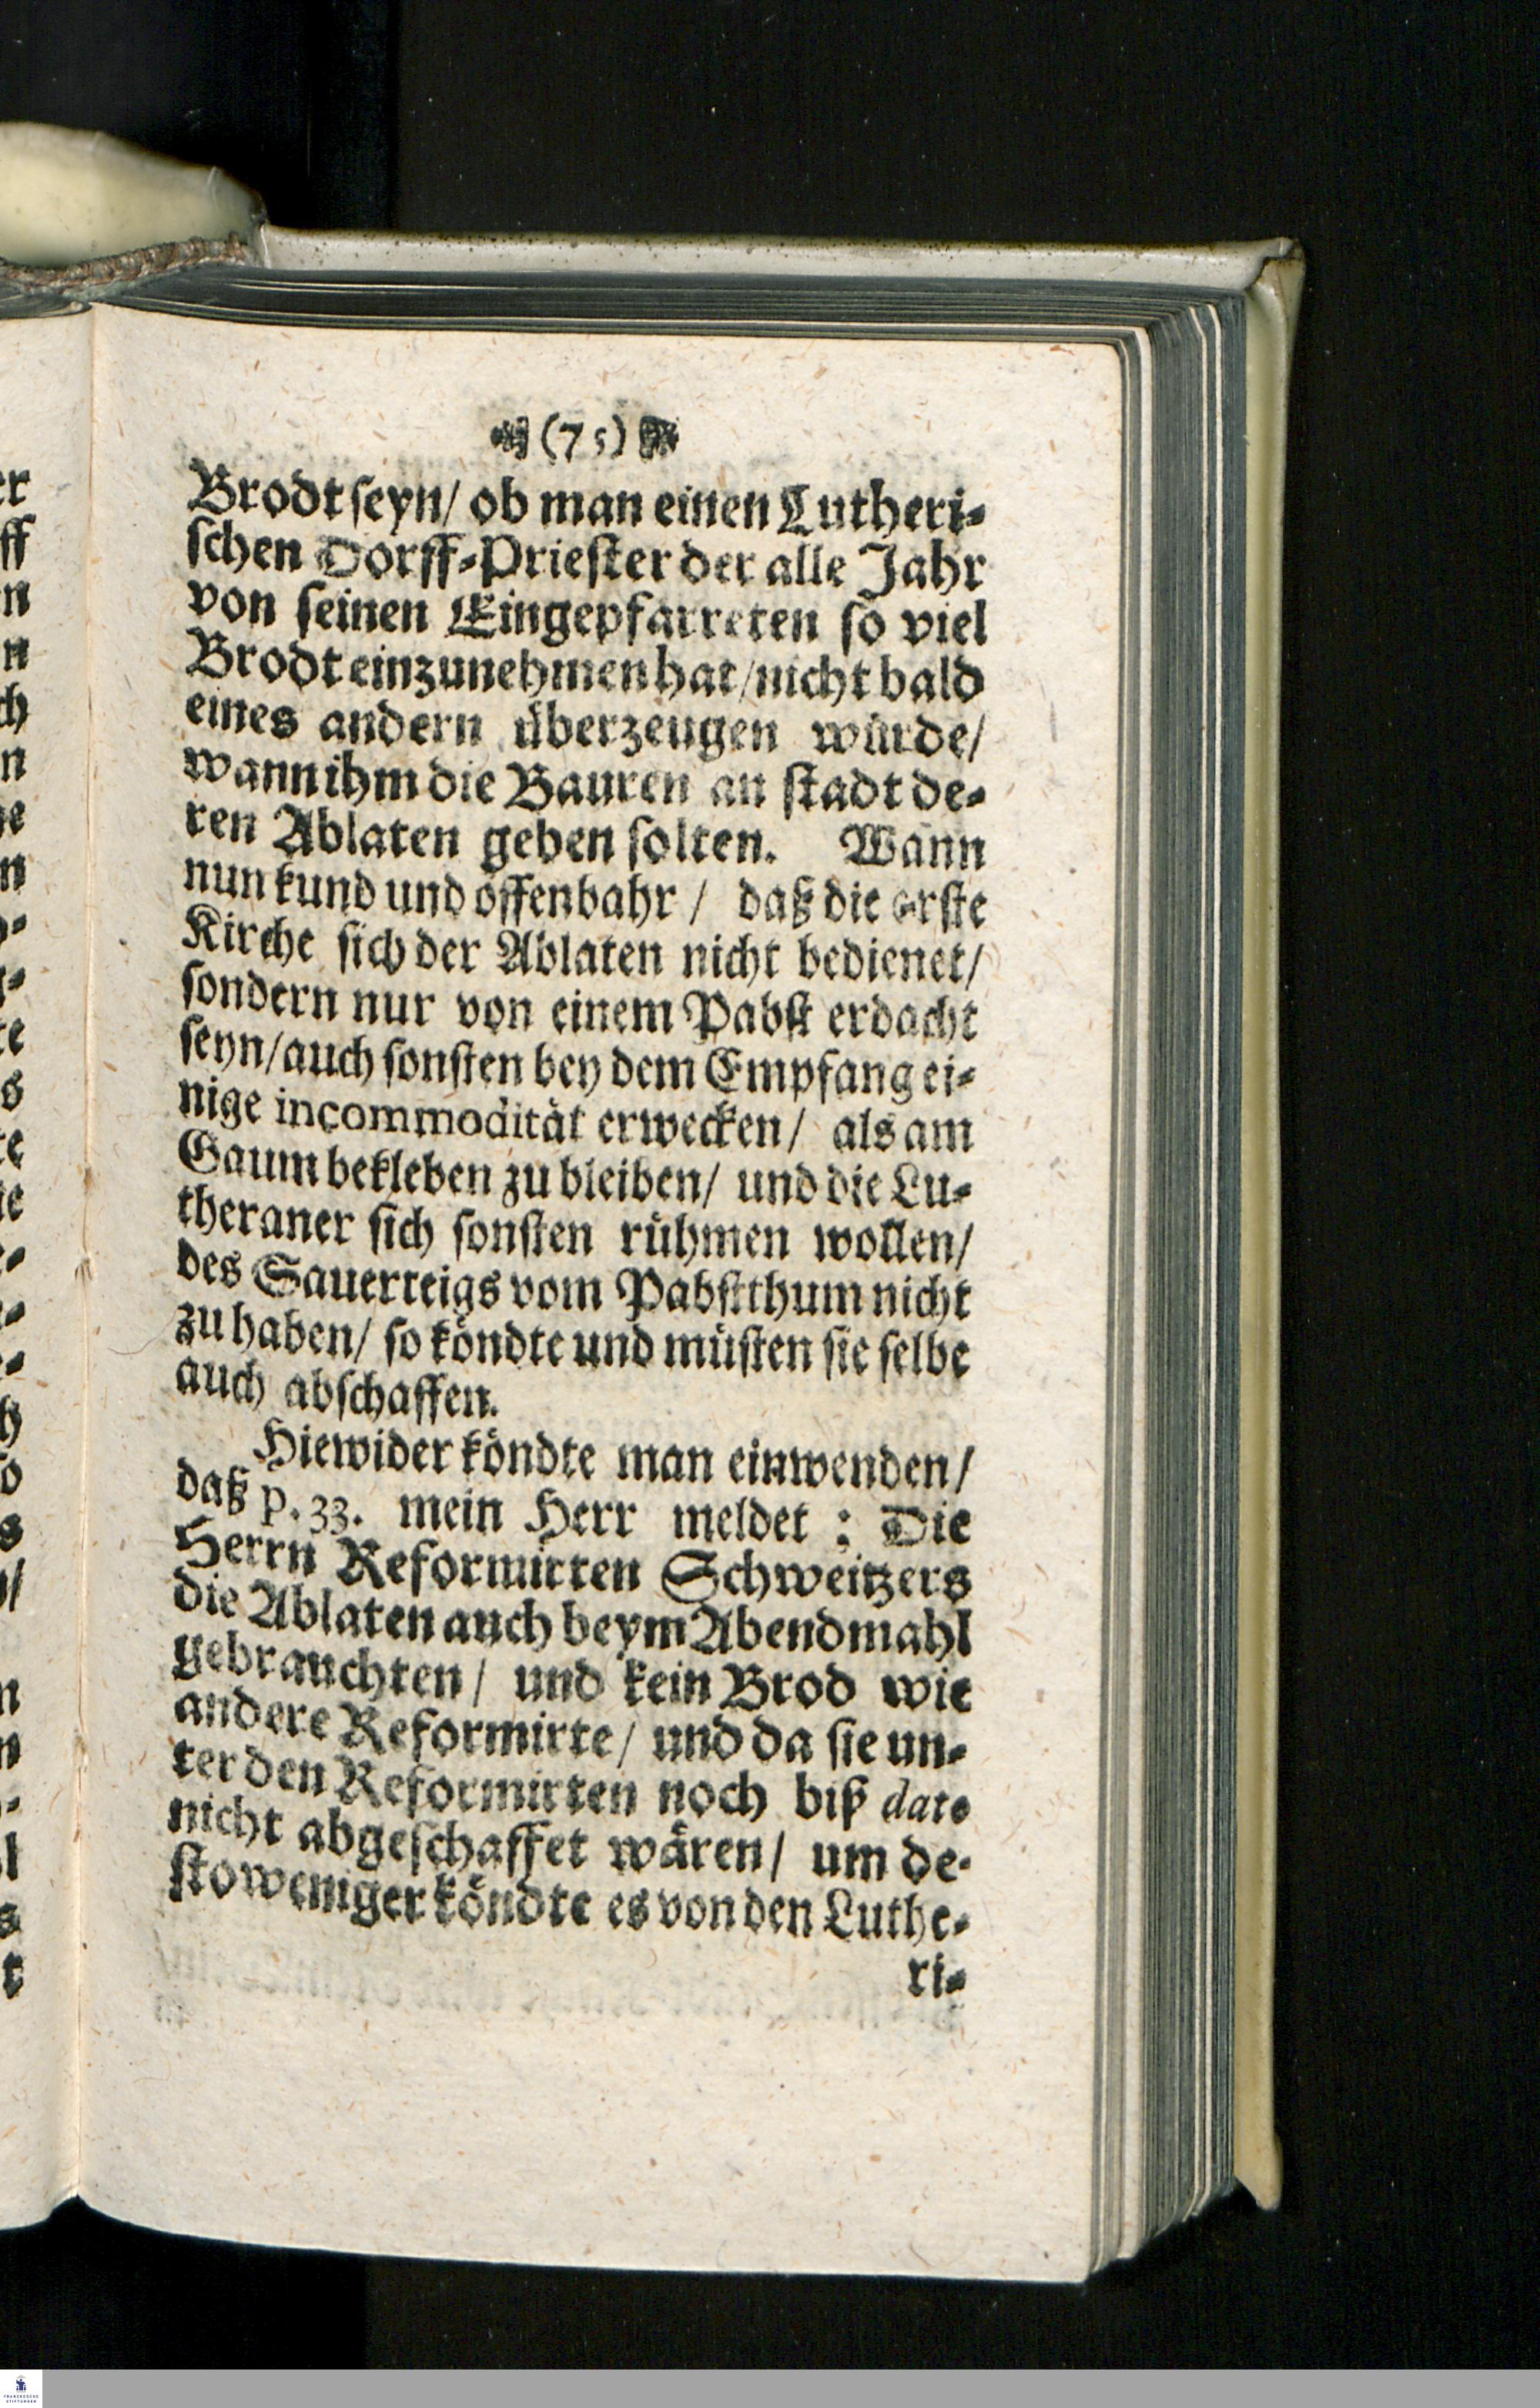 (75)
Brodt seyn/ ob man einen Lutheri-
schen Dorff-Priester der alle Jahr
von seinen Eingepfarreten so viel
Brodt einzunehmen hat/ nicht bald
eines andern überzeugen würde/
wann ihm die Bauren an stadt de-
ren Ablaten geben solten. Wann
nun kund und offenbahr / daß die erste
Kirche sich der Ablaten nicht bedienet/
sondern nur von einem Pabst erdacht
seyn/ auch sonsten bey dem Empfang ei-
nige incommodität erwecken/ als am
Gaum bekleben zu bleiben/ und die Lu-
theraner sich sonsten rühmen wollen/
des Sauerteigs vom Pabstthum nicht
zu haben/ so köndte und müsten sie selbe
auch abschaffen.
Hiewider köndte man einwenden/
daß p. 33. mein Herr meldet : Die
Herrn Reformirten Schweitzers
die Ablaten auch beym Abendmahl
gebrauchten/ und kein Brod wie
andere Reformirte/ und da sie un-
ter den Reformirten noch biß dato
nicht abgeschaffet wären/ um de-
stoweniger köndte es von den Luthe-
ri-